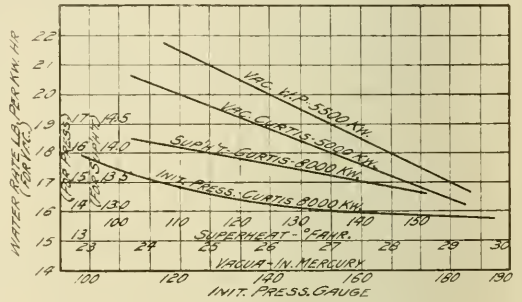 WATER RATE LB. PER KW. HR
(FOR VAC.)
(FOR PRESS)
(FOR SUP'H'T)
22
21
20
19
18
17
16
15
14
17 14.5
16 14.0
15 13.5
14 13.0
13
VAC. W.P. 5500 KW.
VAC. CURTIS-5000 KW.
SUP'H'T-CURTIS-8000 KW.
INIT. PRESS.-CURTIS 8000 KW.
100 110 120 130 140 150
SUPERHEAT-°FAHR.
23 24 25 26 27 28 29 30
VACUA-IN. MERCURY
100 120 140 160 180 190
INIT. PRESS. GAUGE